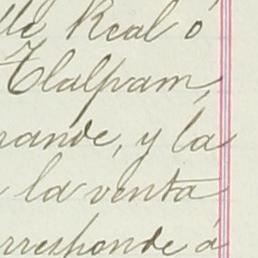 lle Real ó
Tlalpam,
rande, y la
la venta
rresponde á